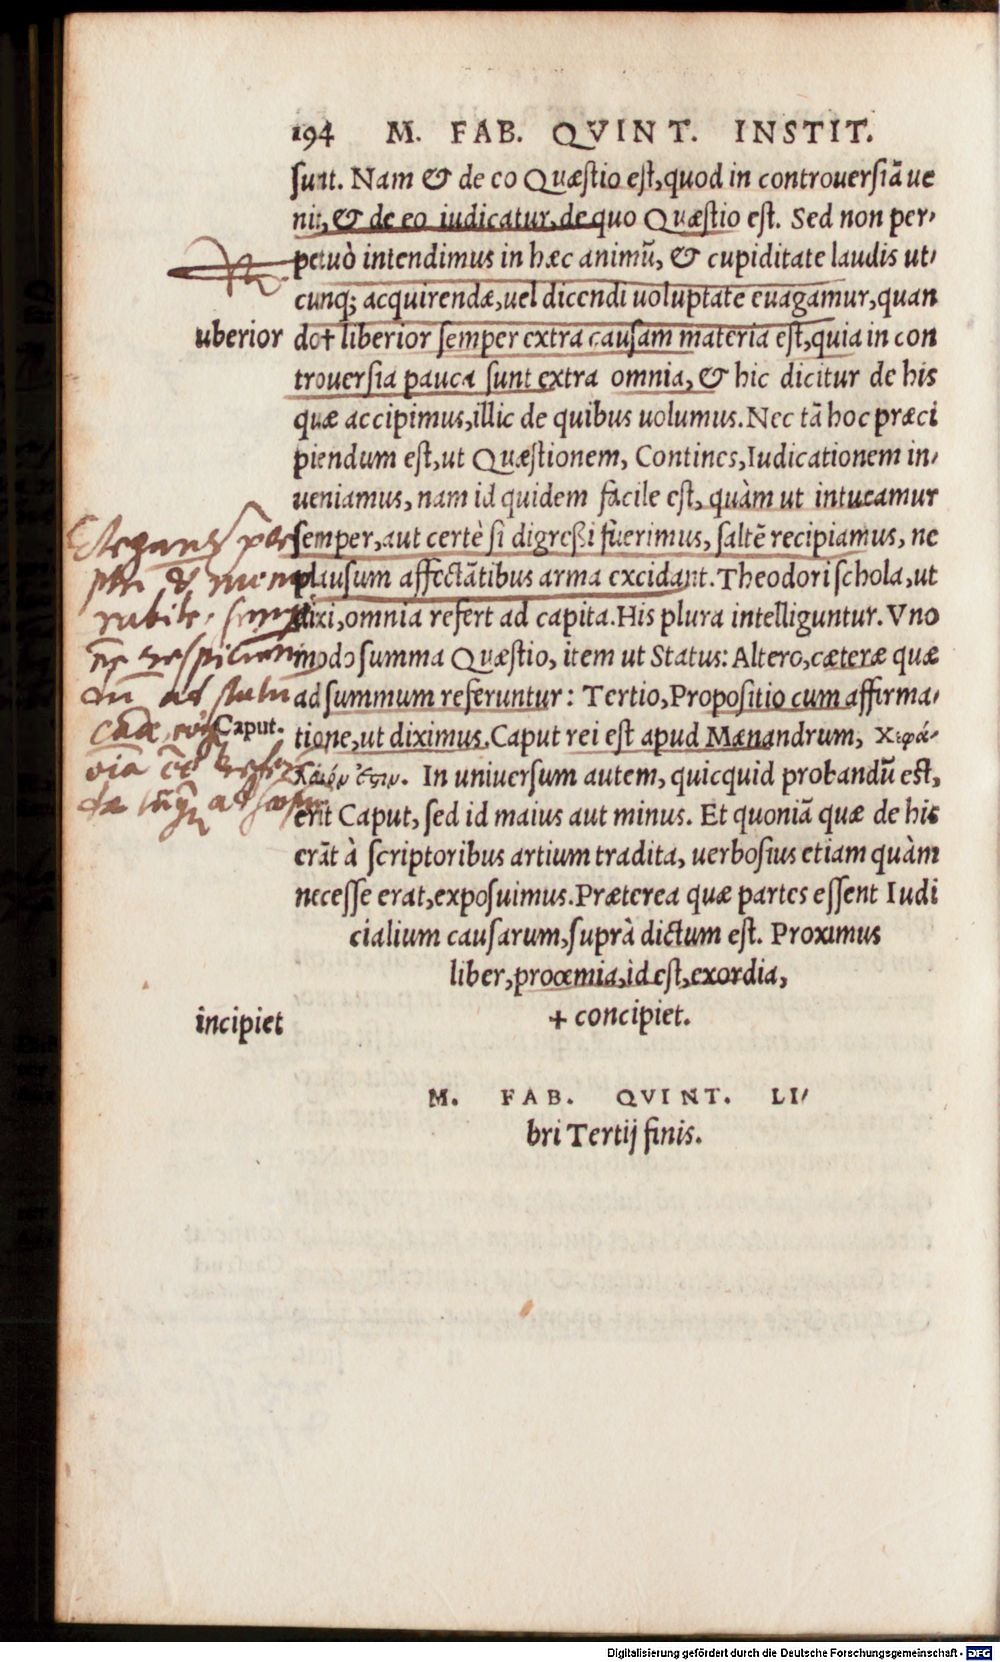 194 M. FAB. QVINT. INSTIT.
sunt. Nam & de eo Quæstio est, quod in controuersiā ue
nit, & de eo iudicatur, de quo Quæstio est. Sed non per-
petuò intendimus in hæc animū, & cupiditate laudis ut-
cunq; acquirendæ, uel dicendi uoluptate euagamur, quan
uberior
do+ liberior semper extra causam materia est, quia in con
trouersia pauca sunt extra omnia, & hic dicitur de his
quæ accipimus, illic de quibus uolumus. Nec tā hoc præci
piendum est, ut Quæstionem, Continens, Iudicationem in-
ueniamus, nam id quidem facile est, quàm ut intueamur
semper, aut certè si digreßi fuerimus, saltē recipiamus, ne
plausum affectātibus arma excidant. Theodori schola, ut
dixi, omnia refert ad capita. His plura intelliguntur. Vno
modo summa Quæstio, item ut Status: Altero, cæteræ quæ
ad summum referuntur: Tertio, Propositio cum affirma-
Caput.
tione, ut diximus. Caput rei est apud Mænandrum, κεφά-
λαιόν ἐστιν. In uniuersum autem, quicquid probandū est,
erit Caput, sed id maius aut minus. Et quoniā quæ de his
erāt à scriptoribus artium tradita, uerbosius etiam quàm
necesse erat, exposuimus. Præterea quæ partes essent Iudi
cialium causarum, suprà dictum est. Proximus
liber, proœmia, id est, exordia,
incipiet
+ concipiet.
M. FAB. QVINT. LI-
bri Tertij finis.
Digitalisierung gefördert durch die Deutsche Forschungsgemeinschaft - DFG